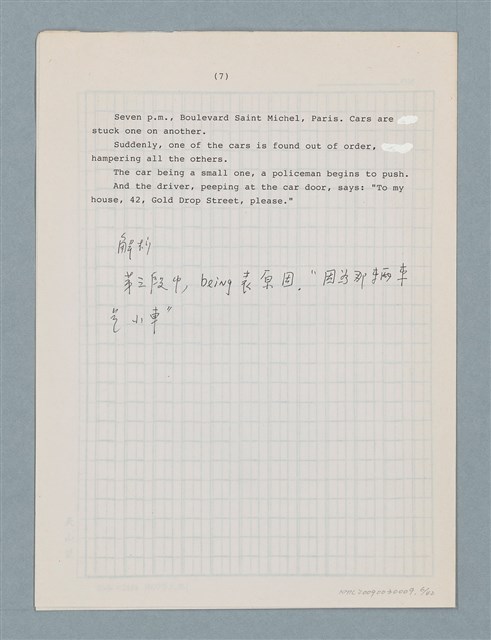 (7)
Seven p.m., Boulevard Saint Michel, Paris. Cars are
stuck one on another.
Suddenly, one of the cars is found out of order,
hampering all the others.
The car being a small one, a policeman begins to push.
And the driver, peeping at the car door, says: "To my
house, 42, Gold Drop Street, please."
解析
第三段中, being 表原因. "因為那輛車
是小車"